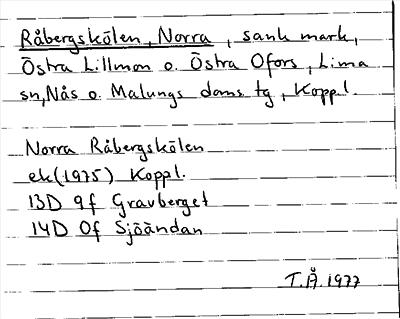 Råbergskölen, Norra, sank mark,
Östra Lillmon o. Östra Ofors, Lima
sn, Nås o. Malungs doms tg, Koppl.
Norra Råbergskölen
ek (1975) Koppl.
13D 9f Gravberget
14D 0f Sjöändan
T.Å. 1977